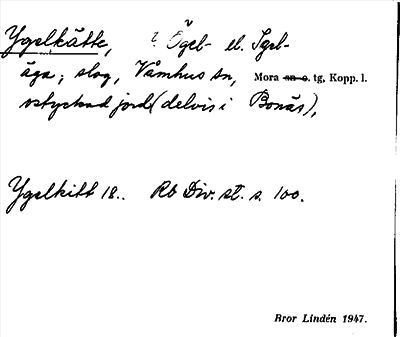 Ygelkätte, Ögel- el. Igel-
äga; slog, Våmhus sn, Mora sn o. tg, Kopp. l.
ostyckad jord (delvis i Bonäs),
Ygelkitt 18.. Rb Div. st. s. 100.
Bror Lindén 1947.